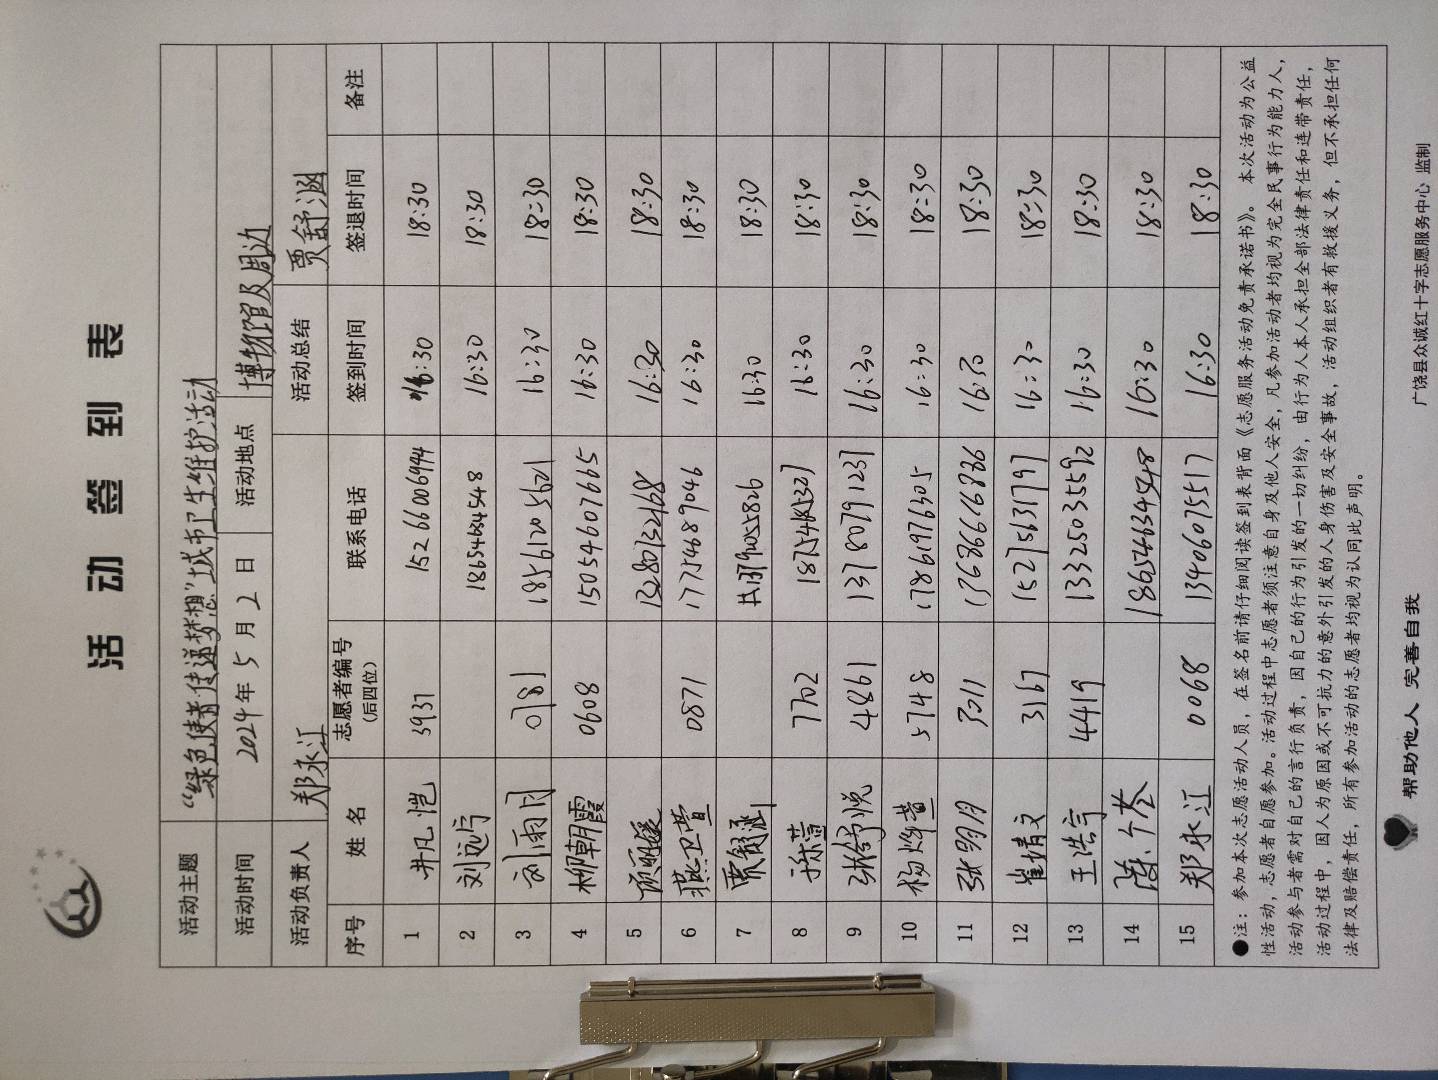 活动签到表
活动主题 “绿色使者·传递梦想”城市卫生维护活动
活动时间 2024年5月2日 活动地点 博物馆及周边
活动负责人 郑永江 活动总结 贾舒涵
序号 姓名 志愿者编号(后四位) 联系电话 签到时间 签退时间 备注
1 井凡恺 3937 15266006944 16:30 18:30
2 刘远宁 18654634548 16:30 18:30
3 刘雨月 0781 18561205621 16:30 18:30
4 柳朝霞 0608 15054607665 16:30 18:30
5 13280132168 16:30 18:30
6 燕卫萱 0871 17754689046 16:30 18:30
7 贾舒涵 16:30 18:30
8 7702 18754685327 16:30 18:30
9 张舒悦 4861 13780791237 16:30 18:30
10 5748 17861976305 16:30 18:30
11 张明月 16:30 18:30
12 崔倩文 3167 15275631797 16:30 18:30
13 王浩宇 4419 13325035592 16:30 18:30
14 18654634548 16:30 18:30
15 郑永江 0068 13406075517 16:30 18:30
●注：参加本次志愿活动人员，在签名前请仔细阅读签到表背面《志愿服务活动免责承诺书》。本次活动为公益
性活动，志愿者自愿参加。活动过程中志愿者须注意自身及他人安全，凡参加活动者均视为完全民事行为能力人，
活动参与者需对自己的言行负责，因自己的行为引发的一切纠纷，由行为人本人承担全部法律责任和连带责任，
活动过程中，因人为原因或不可抗力的意外引发的人身伤害及安全事故，活动组织者有救援义务，但不承担任何
法律及赔偿责任，所有参加活动的志愿者均视为认同此声明。
帮助他人 完善自我 广饶县众诚红十字志愿服务中心 监制